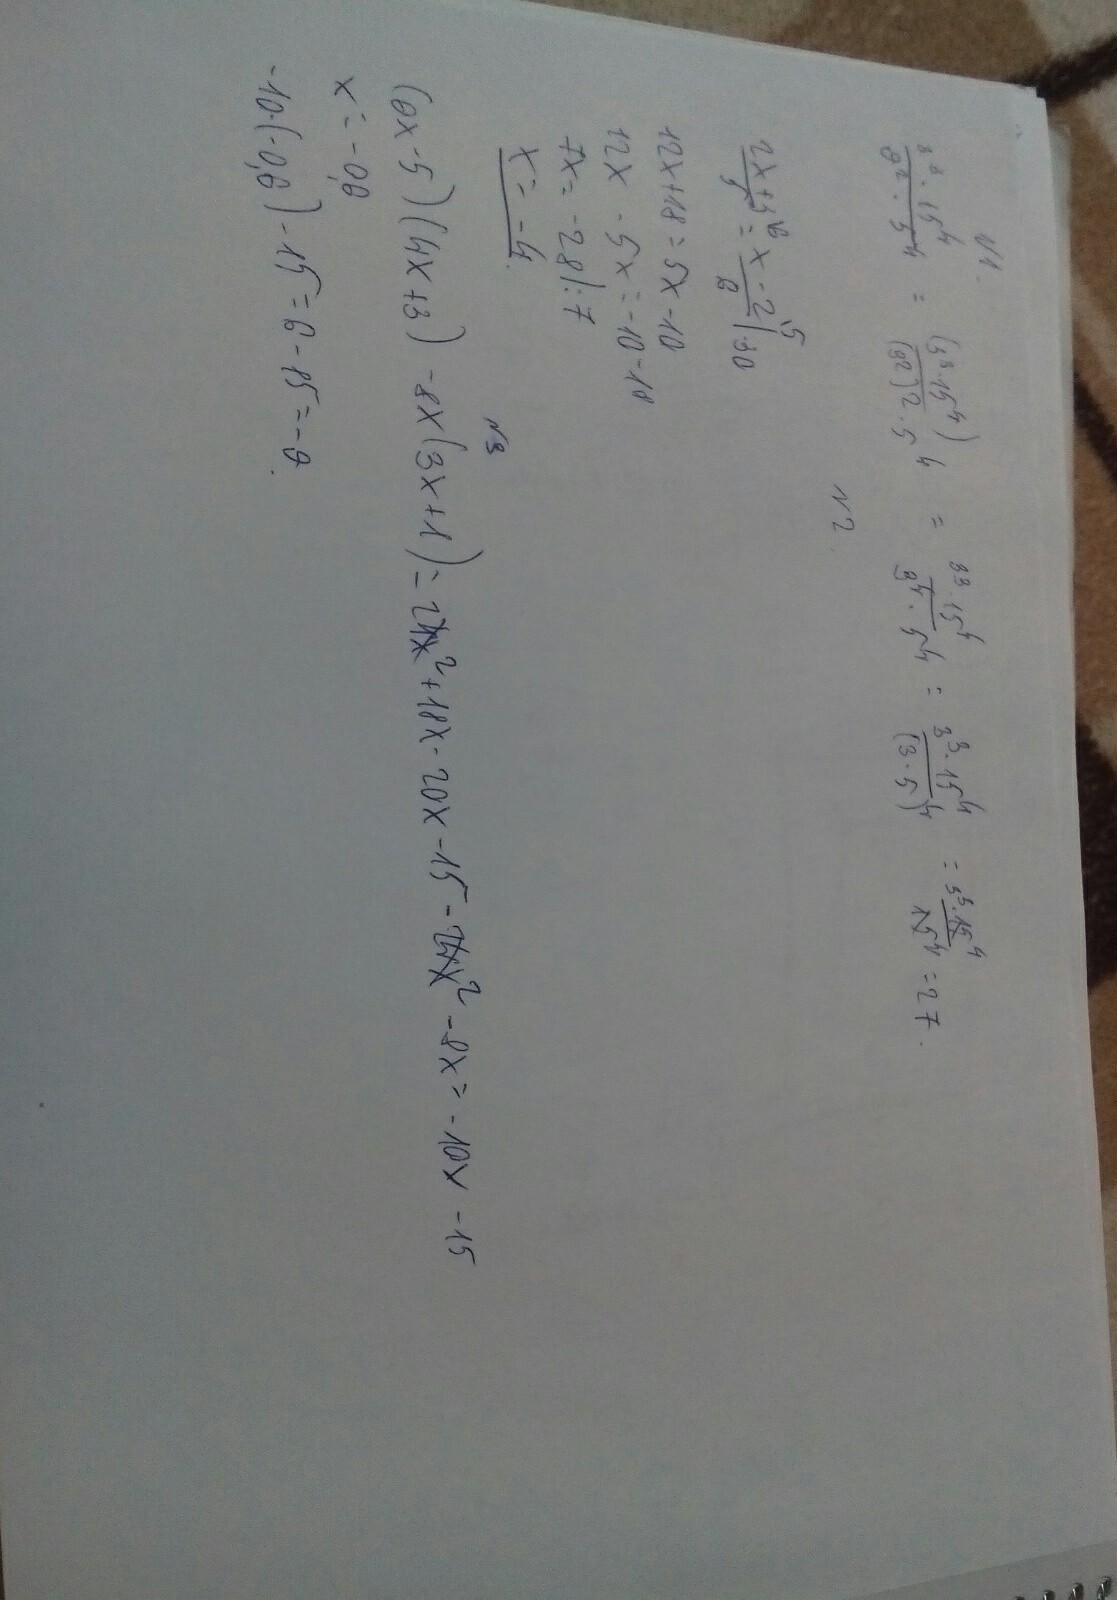 N1.
3³·15⁴ / 9²·5⁴ = (3³·15⁴) / (3²)²·5⁴ = 3³·15⁴ / 3⁴·5⁴ = 3³·15⁴ / (3·5)⁴ = 3³·15⁴ / 15⁴ = 27.
N2.
2x+3 / 5 \6 = x-2 / 6 \5 |·30
12x+18=5x-10
12x -5x=-10-18
7x=-28|:7
x=-4.
N3
(6x-5)(4x+3) -8x(3x+1)=24x²+18x-20x-15-24x²-8x=-10x-15
x=-0,6
-10·(-0,6)-15=6-15=-9.